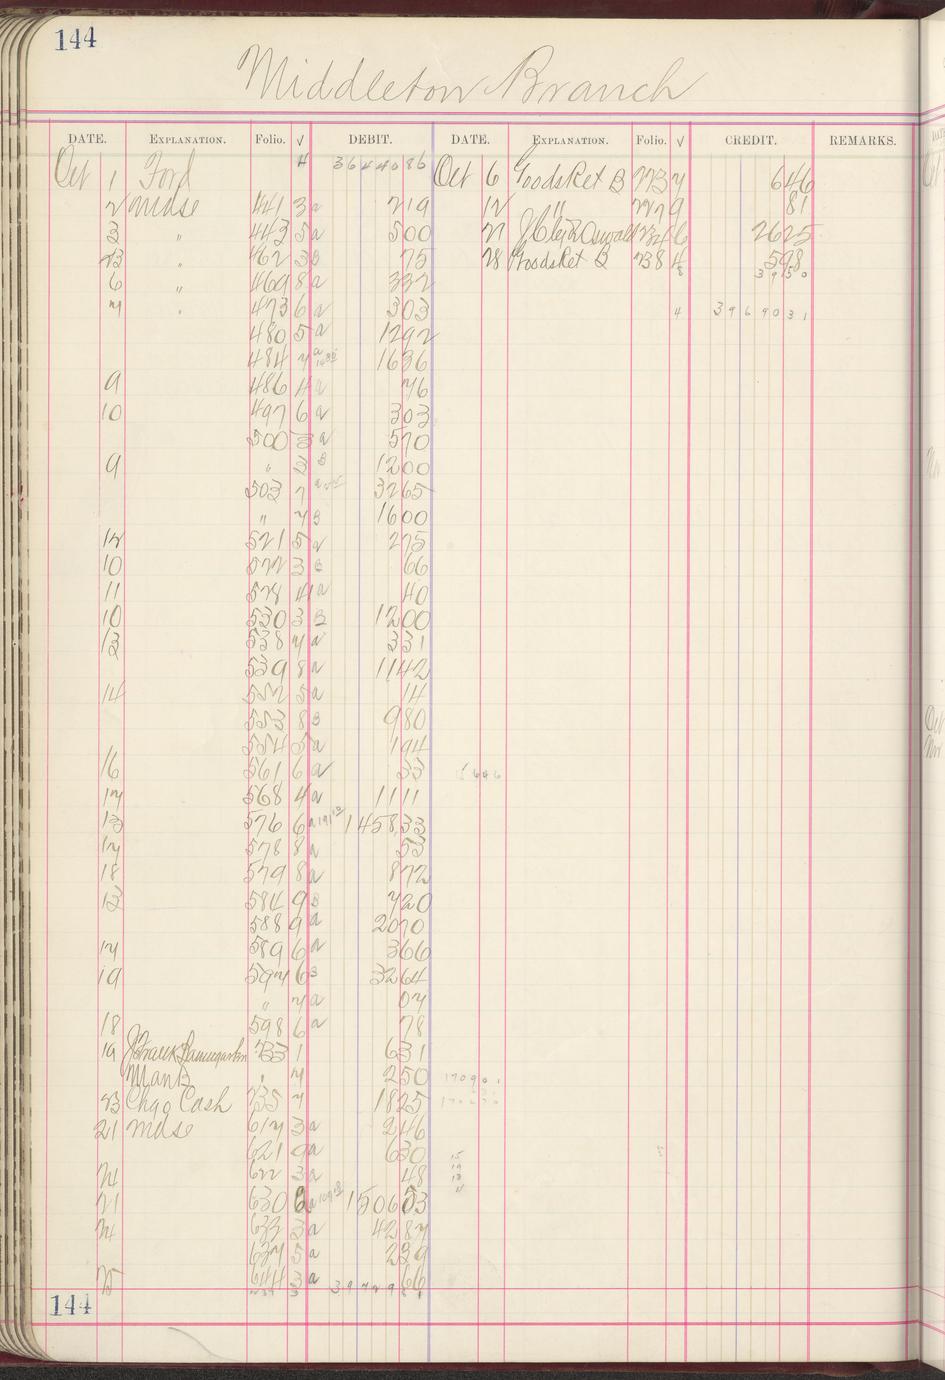 144
Middleton Branch
DATE. EXPLANATION. Folio. √ DEBIT. DATE. EXPLANATION. Folio. √ CREDIT. REMARKS.
Oct 1 Ford 4 3644086 Oct 6 Goods Ret B 773 7 646
2 Mdse 441 3 a 219 12 " 777 9 81
3 " 443 5 a 500 21 6 2625
23 " 462 3 B 75 28 Goods Ret B 738 4 598
6 " 469 8 a 332 3950
7 " 473 6 a 303 4 3969031
480 5 a 1292
484 7 a 1636
9 486 4 a 76
10 497 6 a 303
500 3 a 570
9 " 3 B 1200
503 7 a 3265
" 7 B 1600
12 521 5 a 275
10 522 3 B 66
11 528 4 a 40
10 530 3 B 1200
13 538 7 a 331
539 8 a 1142
14 552 5 a 14
553 8 B 980
554 5 a 194
16 561 6 a 33 646
17 568 4 a 1111
13 576 6 a 145833
17 578 8 a 53
18 579 8 a 872
13 584 9 B 720
588 9 a 2070
17 589 6 a 366
19 597 6 B 3264
" 7 a 07
18 598 6 a 78
19 J Frank Baumgarten 733 1 631
" 7 250 17090
23 Chgo Cash 735 7 1825
21 Mdse 617 3 a 246
621 9 a 630
24 622 3 a 48
21 630 6 a 150653
24 633 3 a 4287
637 5 a 239
25 644 3 a 66
144